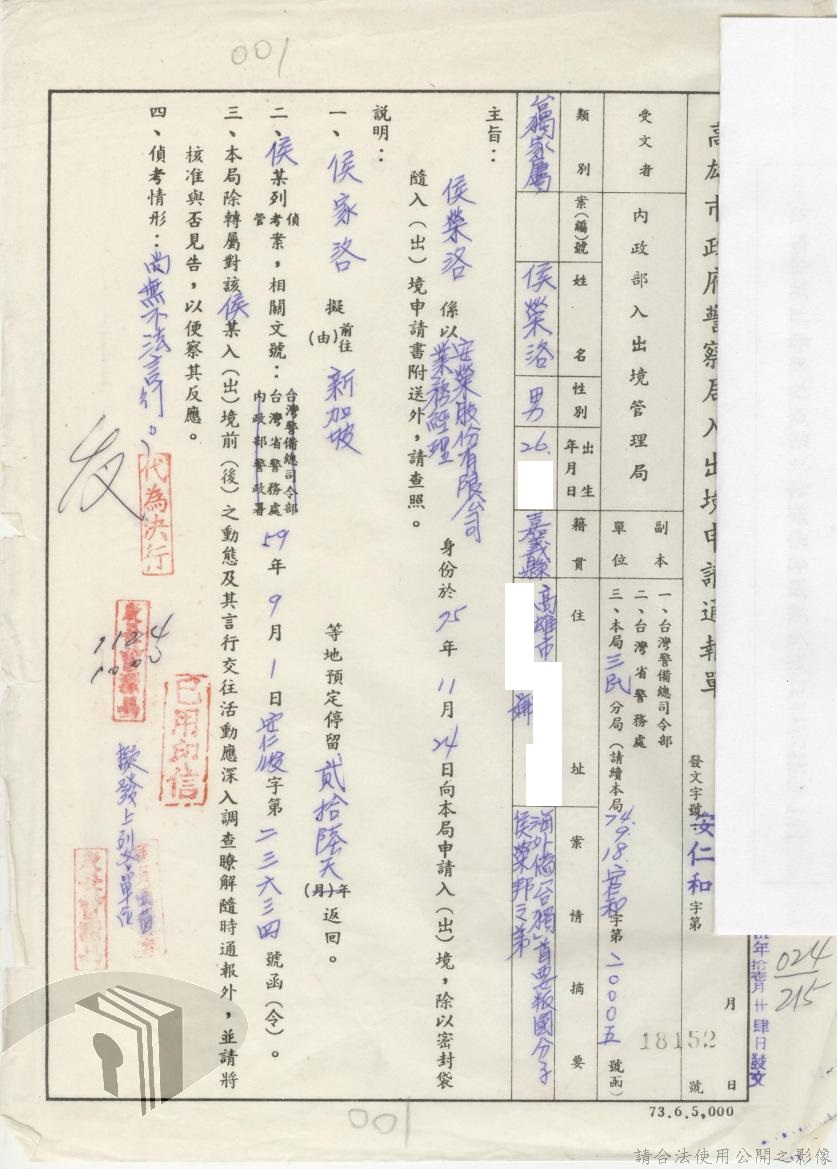 001
高雄市政府警察局入出境申請通報單
發文字號
安仁和字第
18152
號
月
日
伍年拾壹月廿肆日發文
024
215
受文者
內政部入出境管理局
副本
單位
一、台灣警備總司令部
二、台灣省警務處
三、本局三民分局(請續本局74.9.18.安仁和字第二0005號函)
類別
台獨家屬
案(編)號
姓名
侯榮洛
性別
男
出生
年月日
26.
籍貫
嘉義縣
住址
高雄市
號
案情摘要
海外偽「台獨」首要叛國分子
侯榮邦之弟
主旨:
侯榮洛係以安榮股份有限公司
業務經理
身份於75年11月24日向本局申請入(出)境,除以密封袋
隨入(出)境申請書附送外,請查照。
說明:
一、侯家洛擬前往(由)新加坡等地預定停留貳拾陸天(月)年返回。
二、侯某列偵考管案,相關文號:台灣警備總司令部
台灣省警務處
內政部警政署
59年9月1日安仁波字第二三六三四號函(令)。
三、本局除轉屬對該侯某入(出)境前(後)之動態及其言行交往活動應深入調查瞭解隨時通報外,並請將
核准與否見告,以便察其反應。
四、偵考情形:尚無不法言行。
代為決行
1124
1000
已用印信
擬發上列各單位
001
73.6.5,000
請合法使用公開之影像